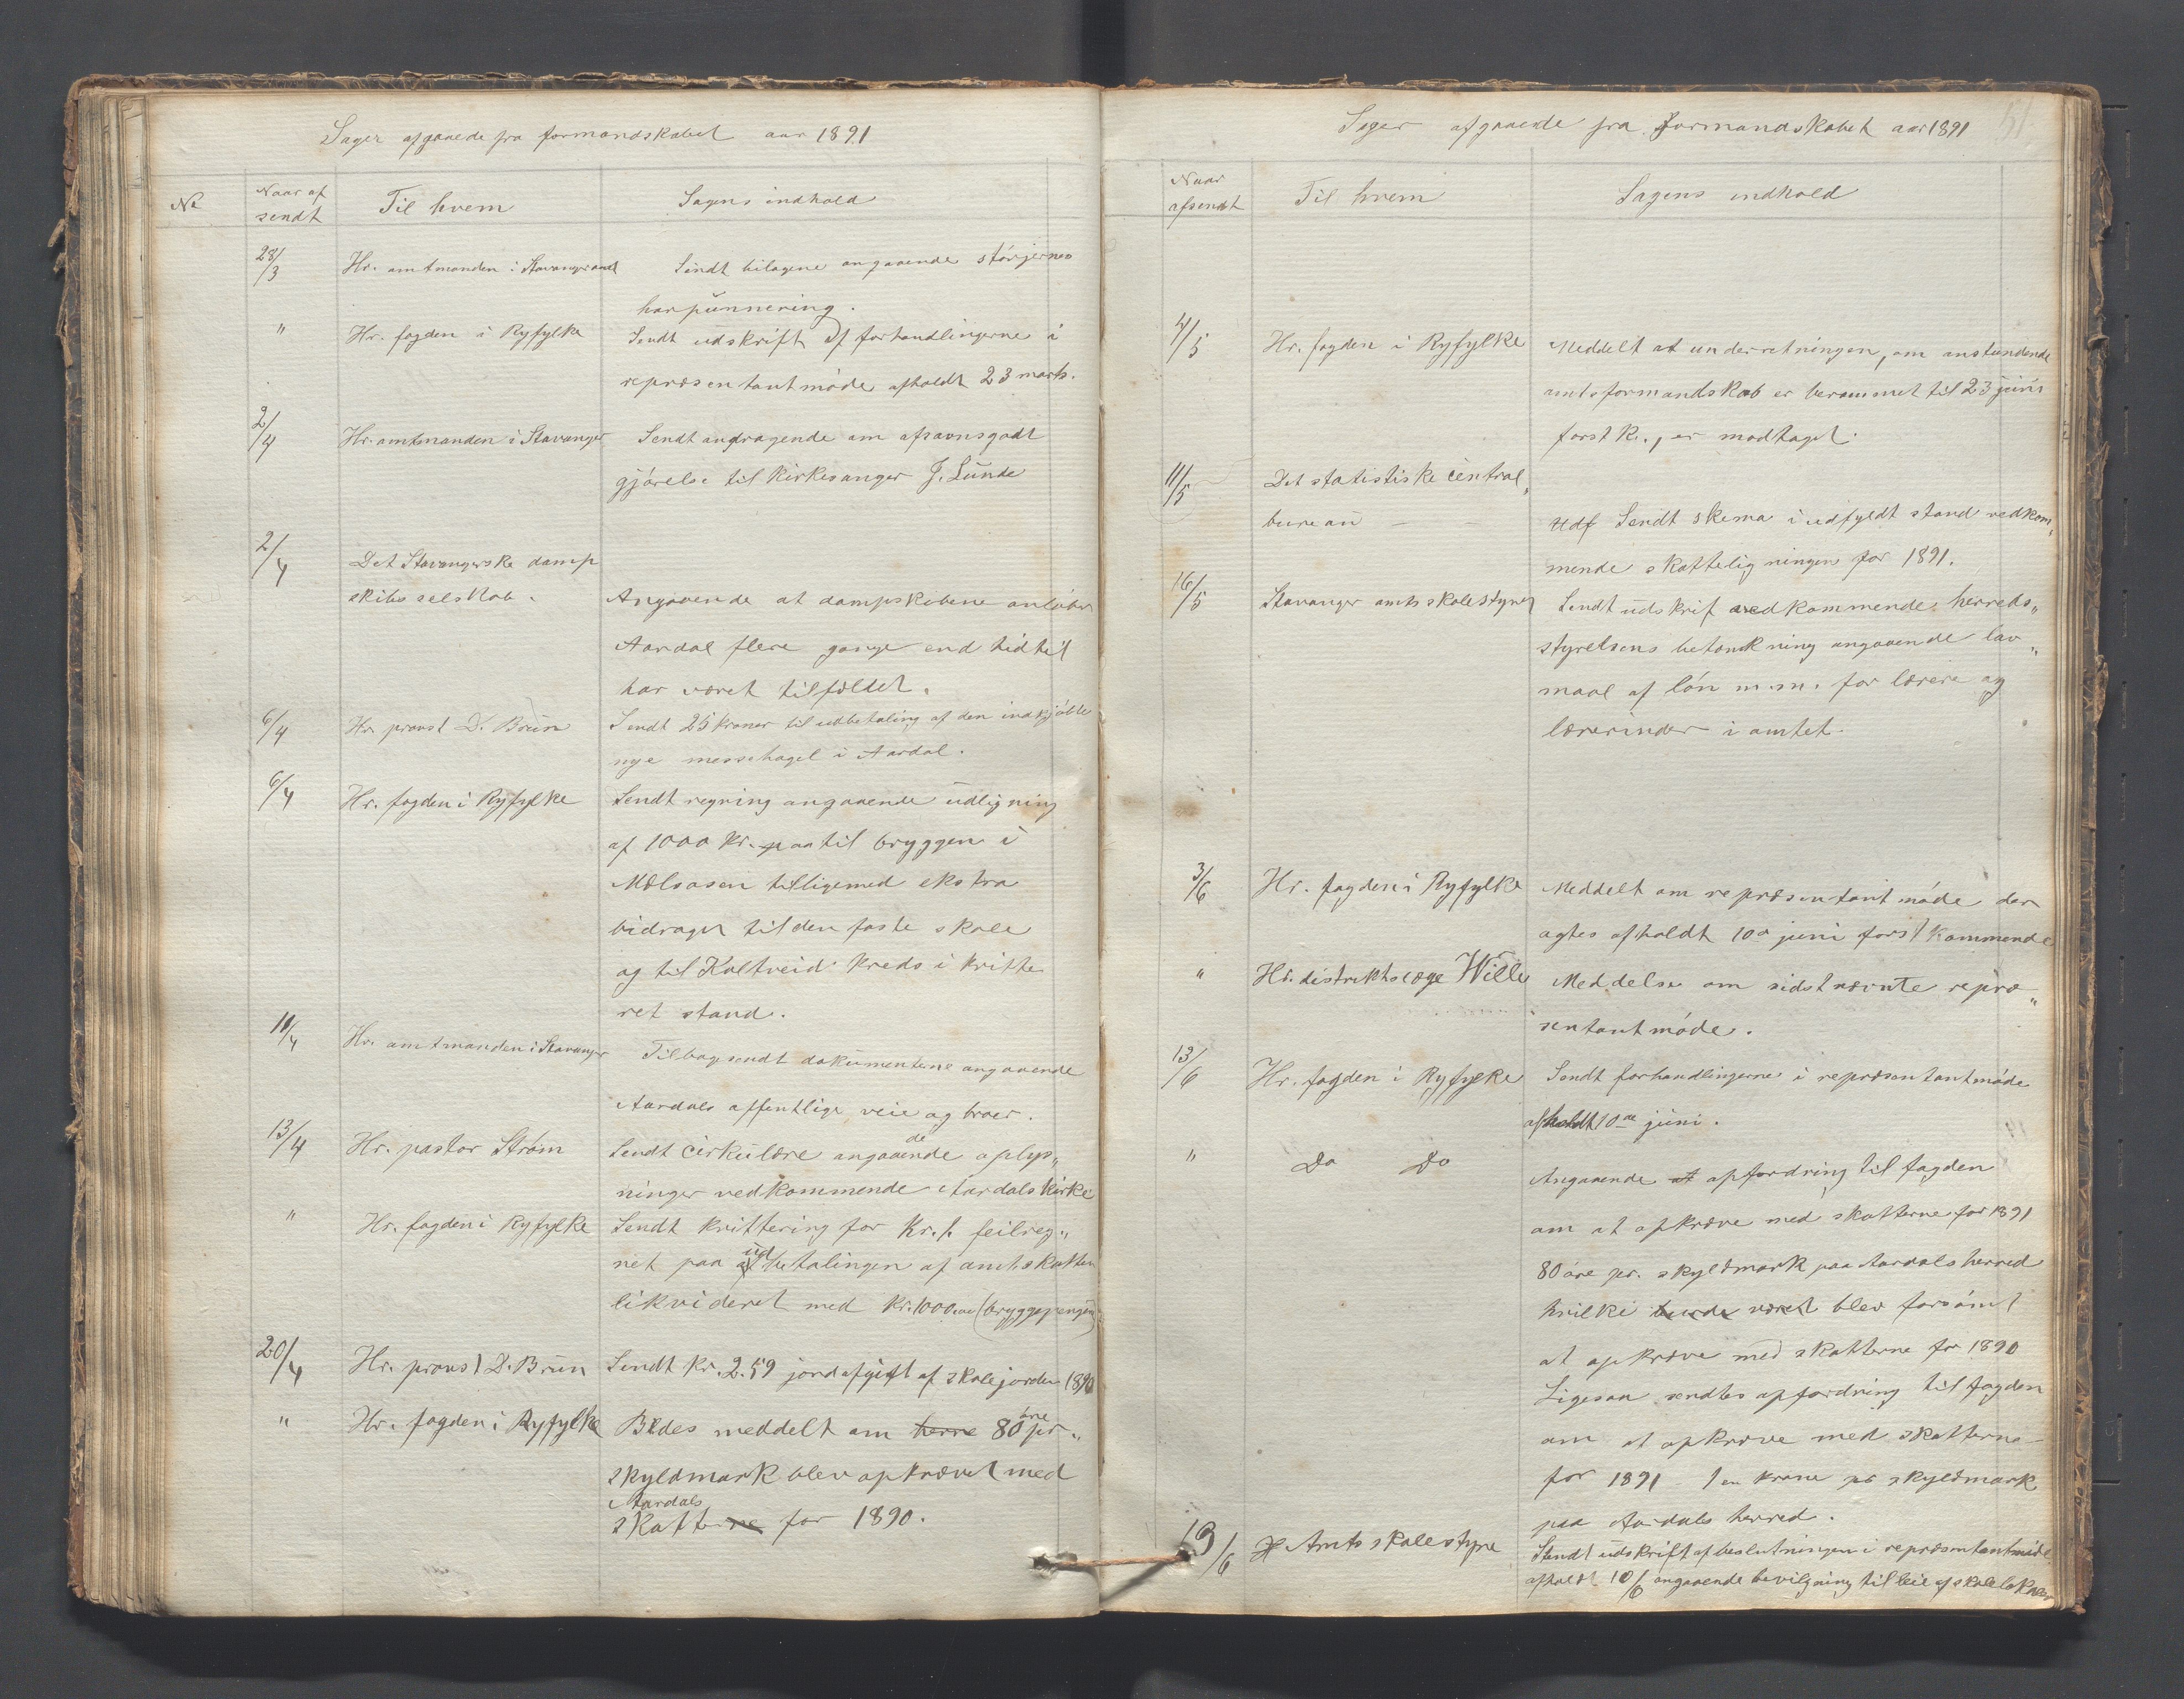 Sager afgaaede fra formandskabet aar 1891
No
Naar af
sendt
Til hvem
Sagens indhold
28/3 Hr. amtmanden i Stavanger amt Sendt bilagene angaaende störjernes
harpunnering.
" Hr. fogden i Ryfylke Sendt udskrift af forhandlingerne i
repræsentantmøde afholdt 23 marts.
2/4 Hr. amtmanden i Stavanger Sendt andragende om afsavnsgodt
gjörelse til kirkesanger J. Lunde
2/4 Det Stavangerske damp
skibsselskab. Angaaende at dampskibene anlöber
Aardal flere gange end hidtil
har været tilfældet.
6/4 Hr. provst D. Brun Sendt 25 kroner til udbetaling af den indkjöbte
nye messehagel i Aardal.
6/4 Hr. fogden i Ryfylke Sendt regning angaaende udligning
af 1000 kr. paa til bryggen i
Mælsosen tilligemed ekstra
bidraget til den faste skole
og til Kaltveid kreds i kvitte
ret stand.
11/4 Hr. amtmanden i Stavanger Tilbagesendt dokumenterne angaaende
Aardals offentlige veie og broer.
13/4 Hr. pastor Ström Sendt cirkulære angaaende de oplys„
ninger vedkommende Aardals kirke
" Hr. fogden i Ryfylke Sendt kvittering for Kr. 1. feilreg„
net paa udbetalingen af amtskatten
likvideret med kr. 1000,00 (bryggepengene)
20/4 Hr. provst D. Brun Sendt kr. 2.59 jordafgift af skolejorden 1890
" Hr. fogden i Ryfylke Bedes meddelt om herre 80 öre pr.„
skyldmark blev opkrævet med
Aardals
skatterne for 1890.
Sager afgaaende fra formandskabet aar 1891
51
Naar
afsendt
Til hvem
Sagens indhold
4/5 Hr. fogden i Ryfylke Meddelt at underretningen, om anstundende
amtsformandskab er berammet til 23 juni
förstk., er modtaget.
11/5 Det statistiske central„
bureau – – Udf Sendt skema i udfyldt stand vedkom„
mende skatteligningen for 1891.
16/5 Stavanger amts skolestyre Sendt udskrift vedkommende herreds„
styrelsens betænkning angaaende lav„
maal af lön m.m. for lærere og
lærerinder i amtet.
3/6 Hr. fogden i Ryfylke Meddelt om repræsentantmöde der
agtes afholdt 10de juni först kommende
" Hr. distriktslæge Wille Meddelse om sidstnævnte repræ„
sentantmöde.
13/6 Hr. fogden i Ryfylke Sendt forhandlingerne i repræsentantmöde
afholdt 10de juni.
" Do Do Angaaende at opfordring til fogden
om at opkræve med skatterne for 1891
80 öre pr. skyldmark paa Aardals herred
hvilke burde været blev forsömt
at opkræve med skatterne for 1890
Ligesaa sendtes opfordring til fogden
om at opkræve med skatterne
for 1891 1 en krone pr skyldmark
paa Aardals herred.
19/6 H Amts skolestyre Sendt udskrift af beslutningen i repræsentantmöde
afholdt 10/6 angaaende bevilgning til leie af skolelokaler